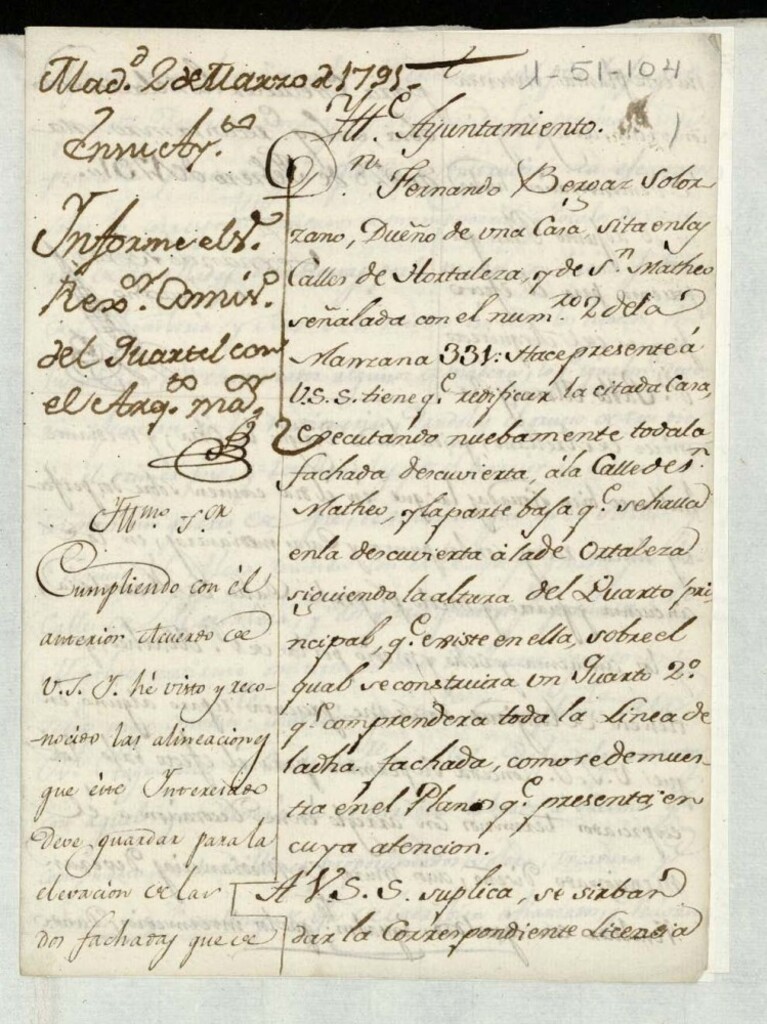 Mad.d 2 de Marzo d 1791
1-51-104
En su Ay.to
Informe el S.r
Rex.or Comis.o
del Quartel con
el Arq.to ma.or
Ill.mo S.or
Cumpliendo con él
anterior Acuerdo de
V.S.I. hé visto y reco-
nocido las alineaciones
que éste Interesado
deve guardar para la
elevacion de las
dos fachadas que de
Ill.e Ayuntamiento.
D.n Fernando Bergaz Solor
zano, Dueño de vna Casa, sita en las
Calles de Hortaleza, y de S.n Matheo
señalada con el num.ro 2 de la
Manzana 331: Hace presente á
V.S.S. tiene q.e redificar la citada Casa,
executando nuebamente toda la
fachada descuvierta, á la Calle de S.n
Matheo, y la parte baja q.e se halla
en la descuvierta á la de Ortaleza
siguiendo la altura del Quarto pri-
ncipal, q.e existe en ella, sobre el
qual se construira un Quarto 2.o
q.e comprendera toda la Linea de
la dha. fachada, como se demues-
tra en el Plano q.e presenta; en
cuya atencion.
A V.S.S. suplica, se sirban
dar la Correspondiente Licencia